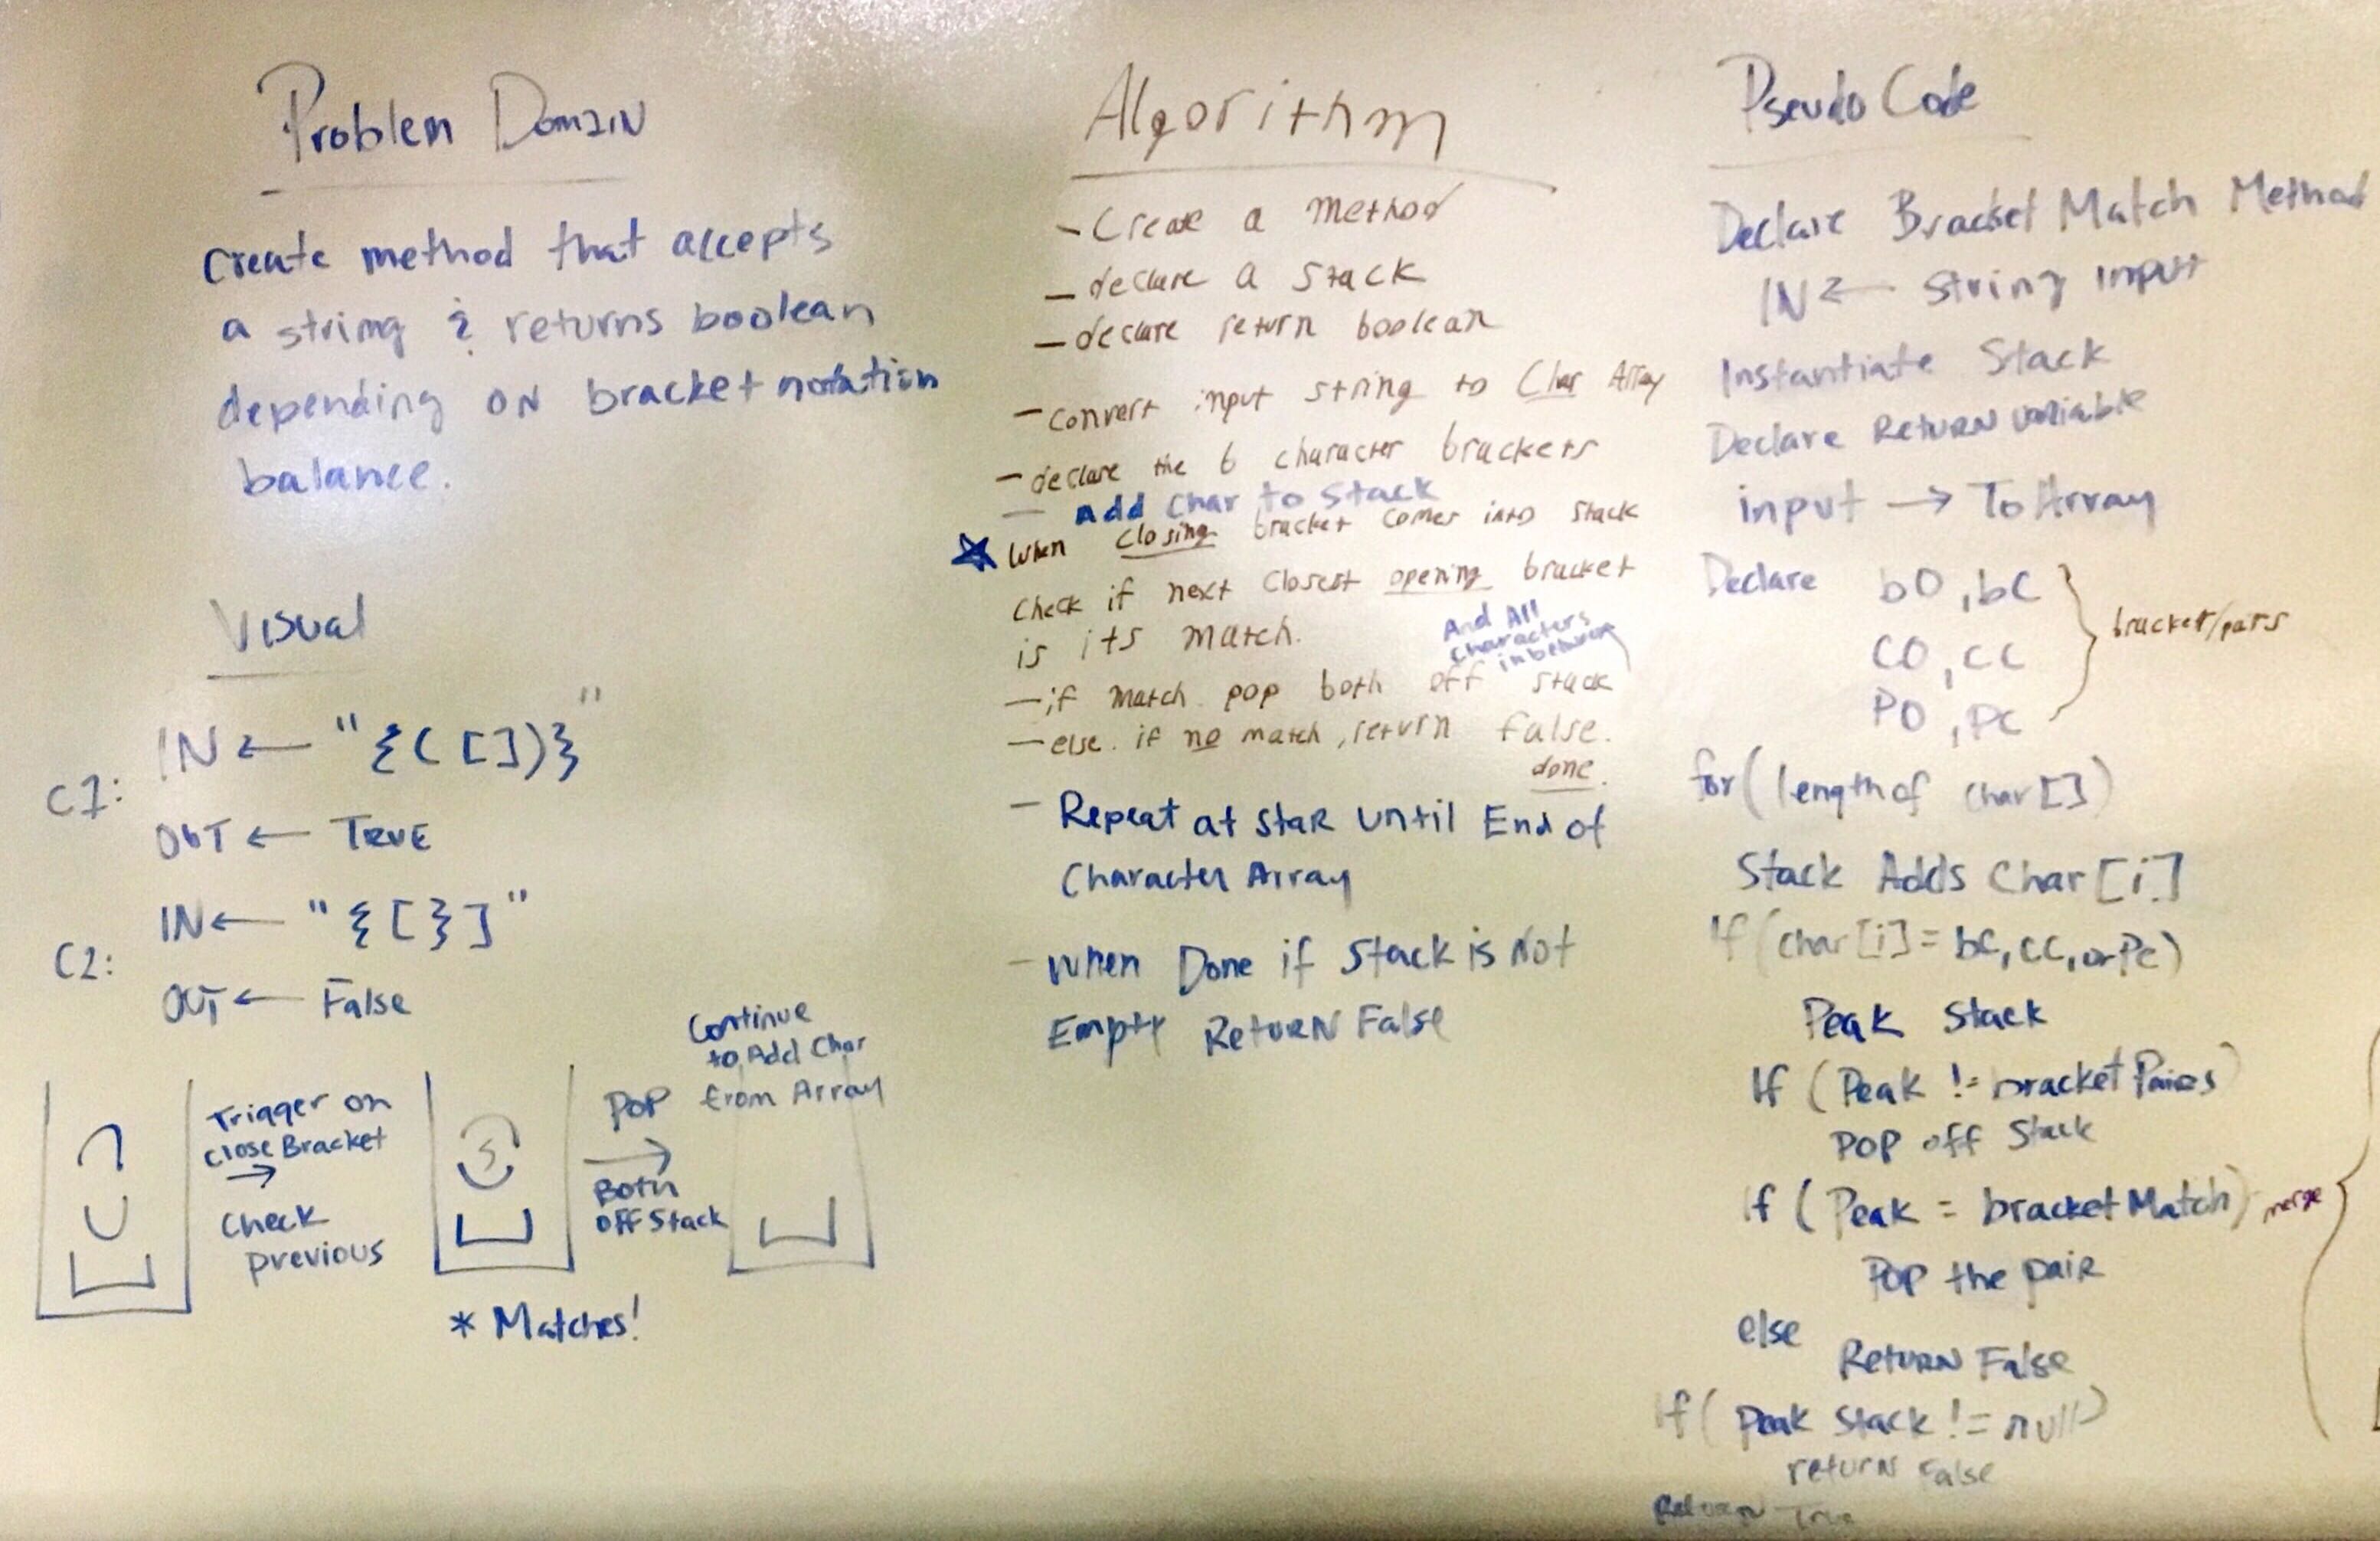 Problem Domain
Create method that accepts
a string & returns boolean
depending on bracket notation
balance.
Visual
C1:
IN ← "{([])}"
OUT ← True
C2:
IN ← "{[}]"
OUT ← False
Trigger on
close Bracket
→
Check
previous
* Matches!
POP
→
Both
off Stack
Continue
to Add Char
from Array
Algorithm
- Create a method
- declare a Stack
- declare return boolean
- convert input string to Char Array
- declare the 6 character brackets
- Add Char to Stack
☆ When closing bracket comes into stack
check if next closest opening bracket
is its match.
And All
characters
in between
- if match pop both off stack
- else if no match, return false.
done.
- Repeat at star until End of
Character Array
- When Done if Stack is Not
Empty Return False
Pseudo Code
Declare Bracket Match Method
IN ← String input
Instantiate Stack
Declare Return variable
input → To Array
Declare bO, bC
CO, CC
PO, PC
bracket/pairs
for (length of char[])
Stack Adds Char[i]
If (char[i] = bC, CC, or PC)
Peak Stack
If (Peak != bracket Pairs)
POP off Stack
If (Peak = bracket Match)
merge
Pop the pair
else
Return False
If (Peak Stack != null)
return False
Return True